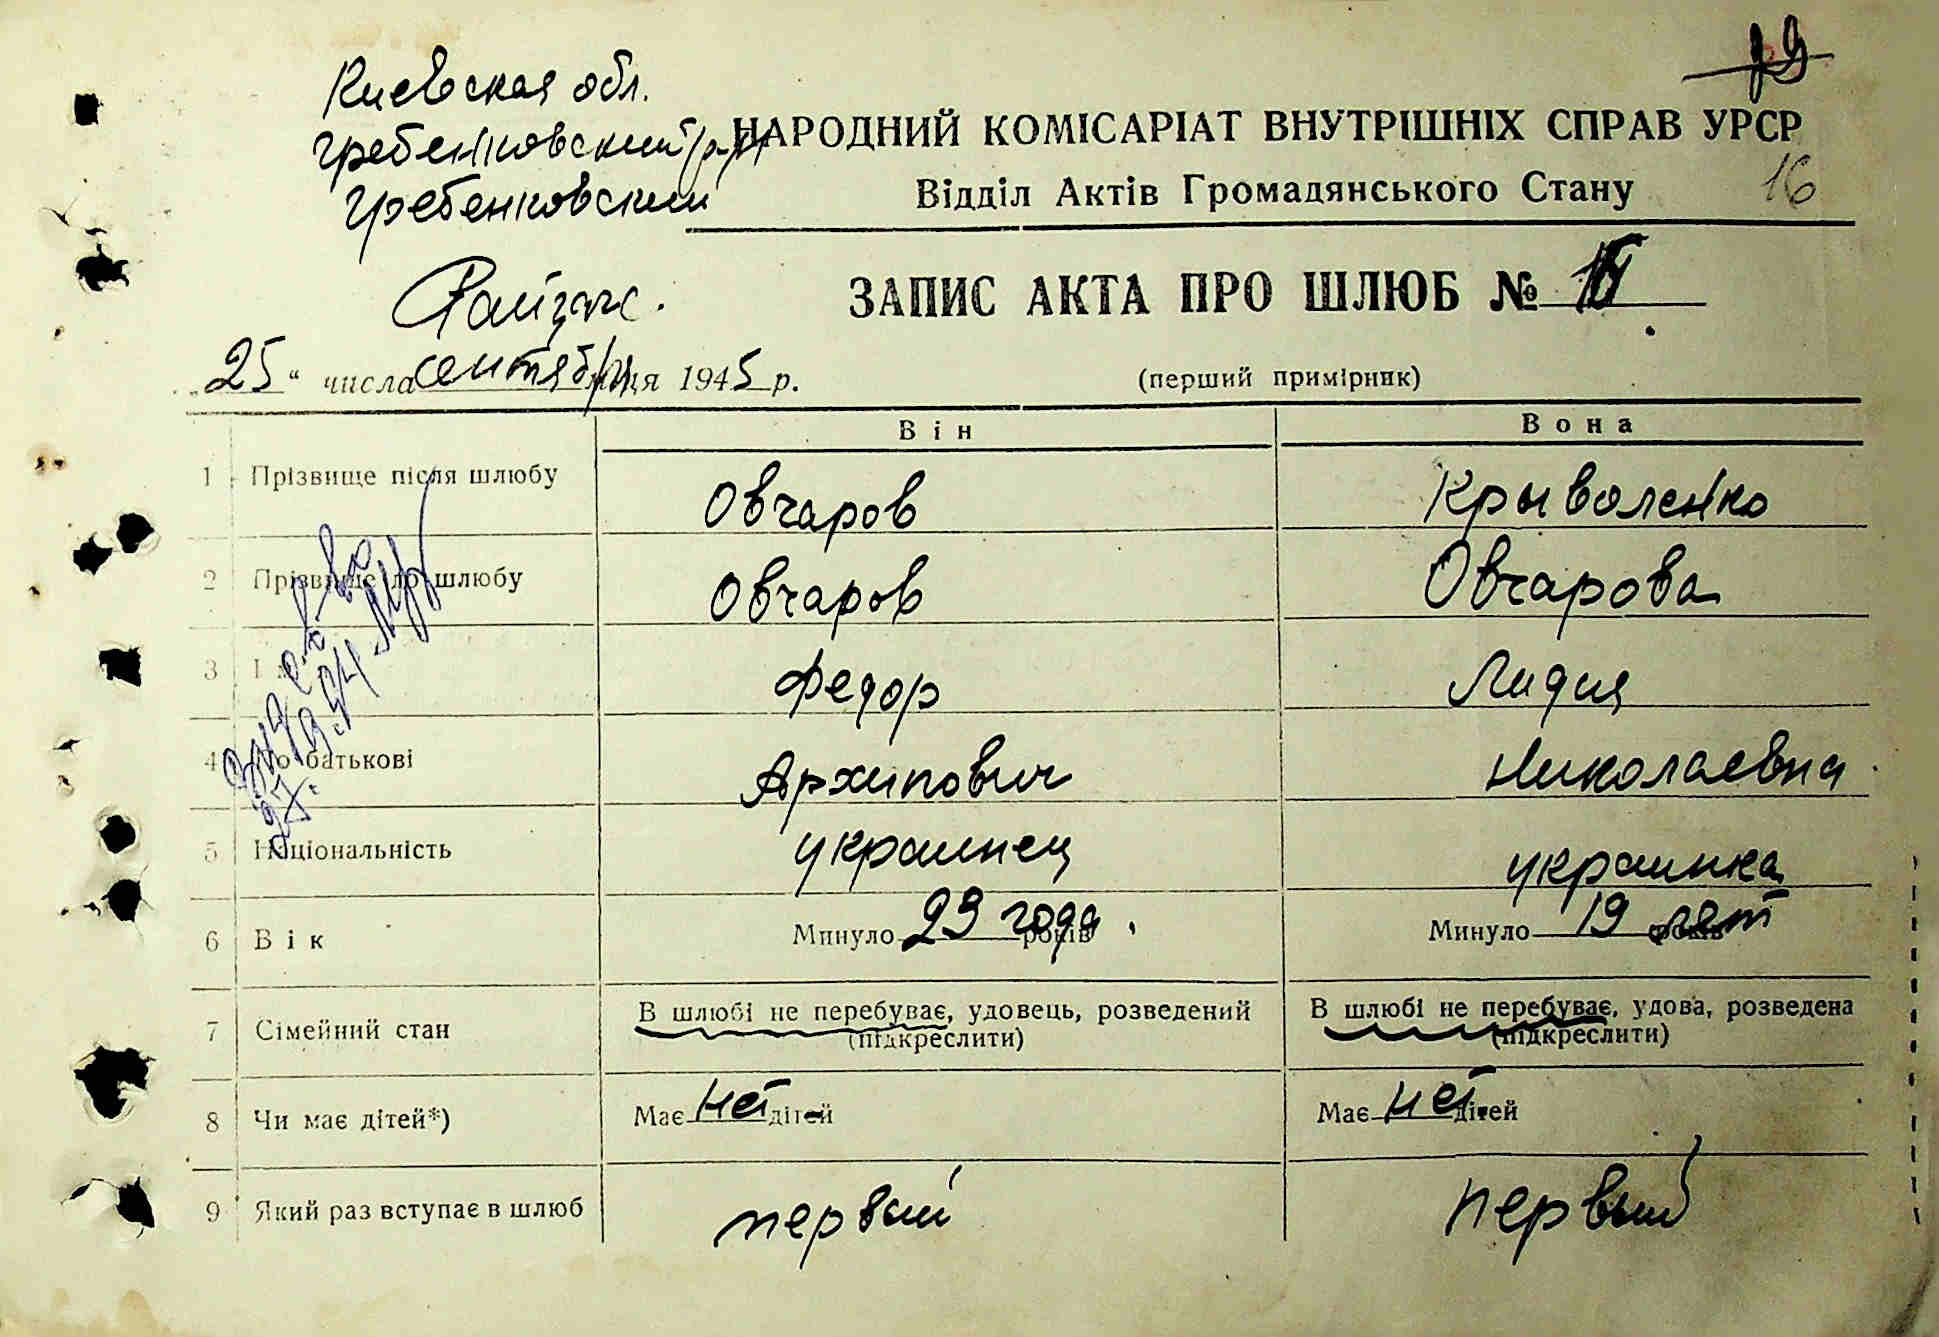 Киевская обл.
Гребенковский р-н
Гребенковский
Райзагс.
79
НАРОДНИЙ КОМІСАРІАТ ВНУТРІШНІХ СПРАВ УРСР
Відділ Актів Громадянського Стану
16
ЗАПИС АКТА ПРО ШЛЮБ №
„25“ числа сентября ця 1945 р.
(перший примірник)
Він
Вона
1 Прізвище після шлюбу Овчаров Крываленко
2 Прізвище до шлюбу Овчаров Овчарова
3 Федор Лидия
4 По батькові Архипович Николаевна
5 Національність украинец украинка
6 Вік Минуло 23 года років Минуло 19 лет років
7 Сімейний стан В шлюбі не перебуває, удовець, розведений (підкреслити) В шлюбі не перебуває, удова, розведена (підкреслити)
8 Чи має дітей*) Має нет дітей Має нет дітей
9 Який раз вступає в шлюб первый первый